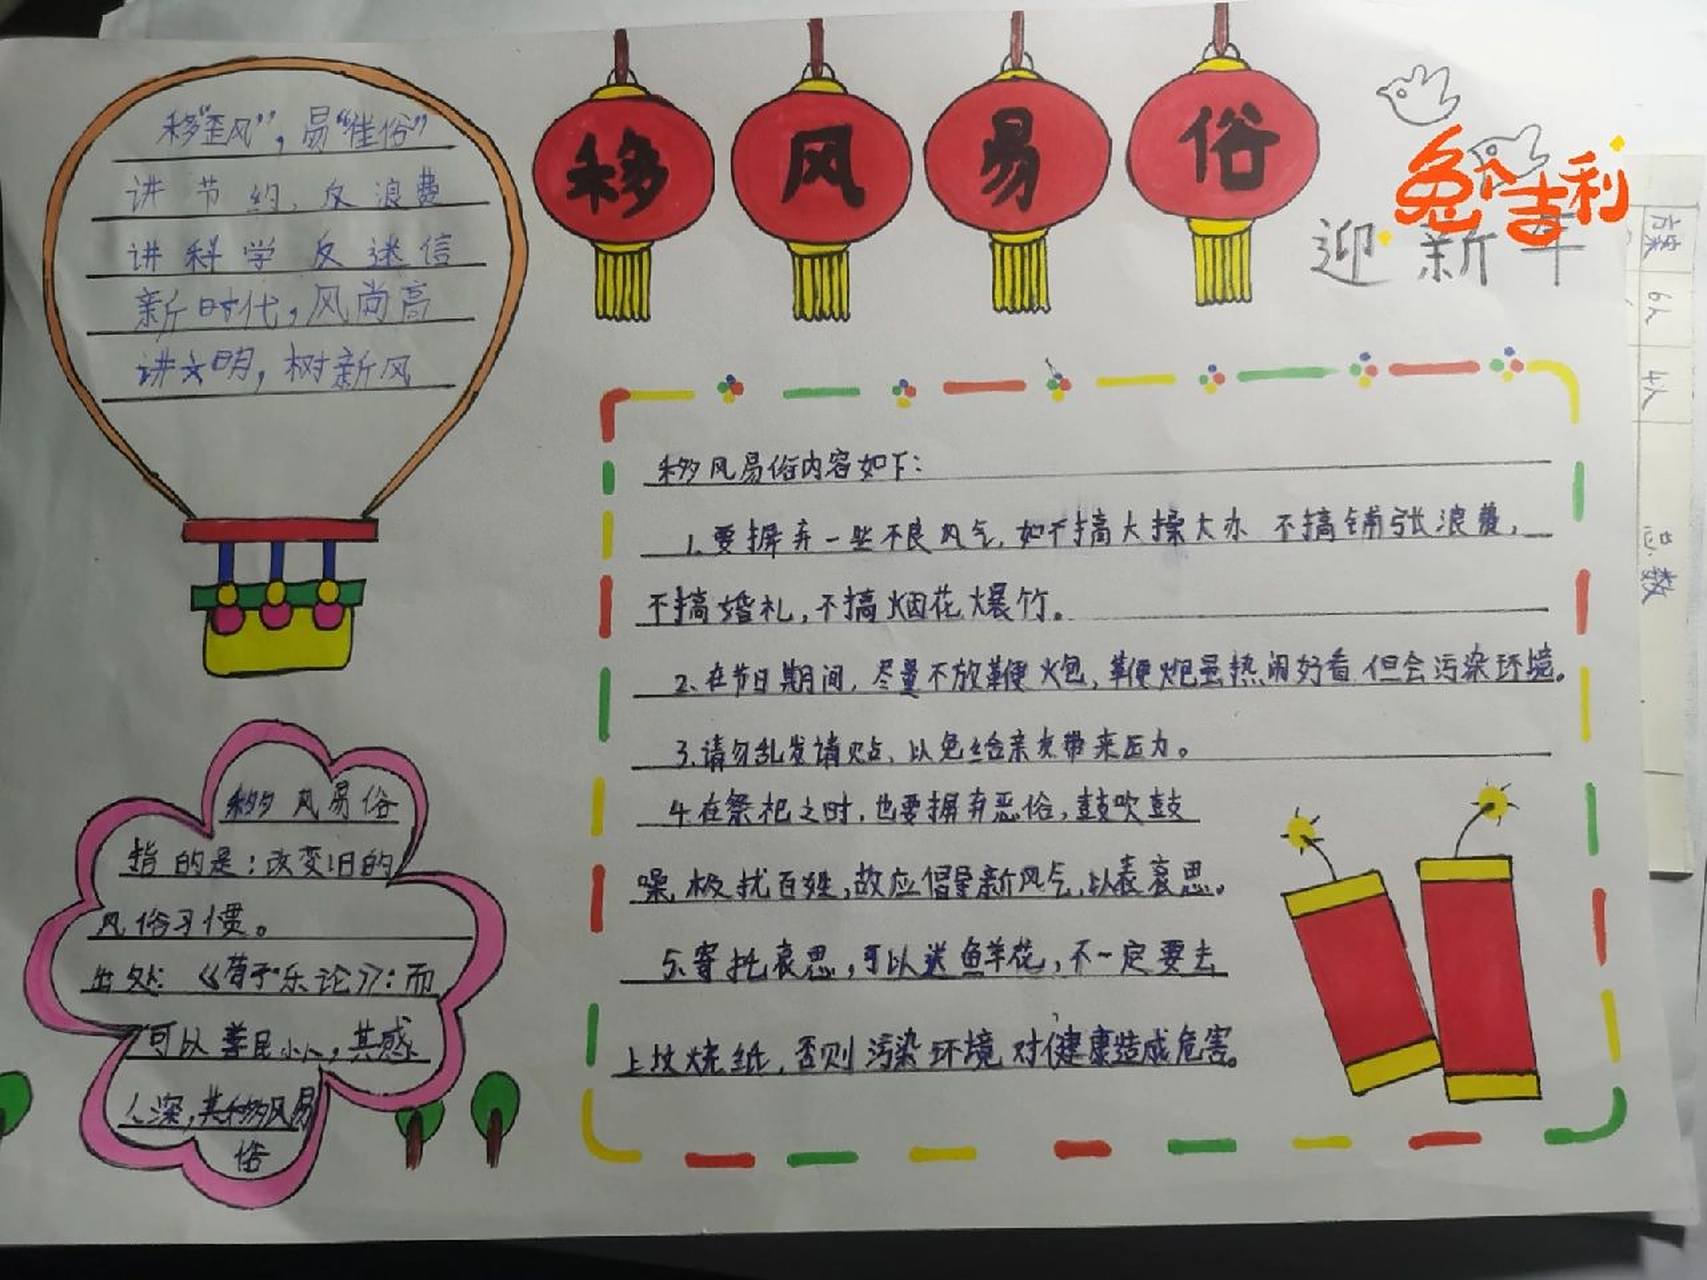 移风易俗
兔个吉利
迎新年
移"歪风",易"俗"
讲节约,反浪费
讲科学 反迷信
新时代,风尚高
讲文明,树新风
移风易俗内容如下:
1.要摒弃一些不良风气,如不搞大操大办 不搞铺张浪费,
不搞婚礼,不搞烟花爆竹。
2.在节日期间,尽量不放鞭火包,鞭炮虽热闹好看 但会污染环境。
3.请勿乱发请贴,以免给亲友带来压力。
4.在祭祀之时,也要摒弃恶俗,鼓吹鼓
噪,极扰百姓,故应倡导新风气,以表哀思。
5.寄托哀思,可以送鲜花,不一定要去
上坟烧纸,否则污染环境 对健康造成危害。
移风易俗
指的是:改变旧的
风俗习惯。
出处:《荀子·乐论》:而
可以善民心,其感
人深,其移风易
俗
六案
6人
4人
总数